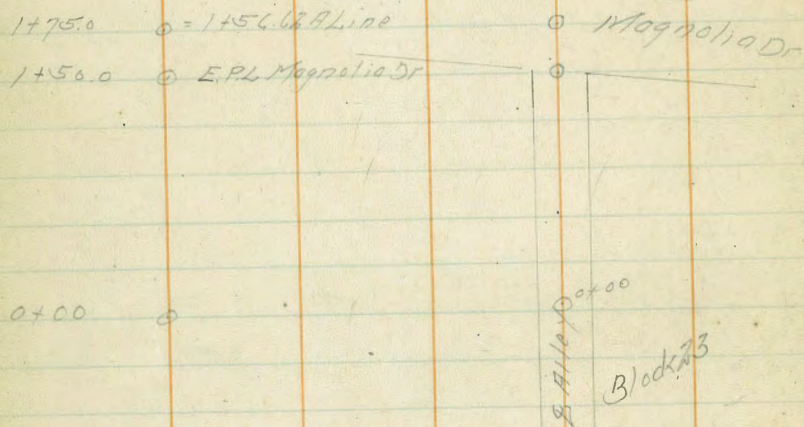 1+75.0 ⊙ = 1+56.62 A Line
Magnolia Dr
1+50.0 ⊙ E.P.L Magnolia Dr
0+00
0+00
Alley
Block 23